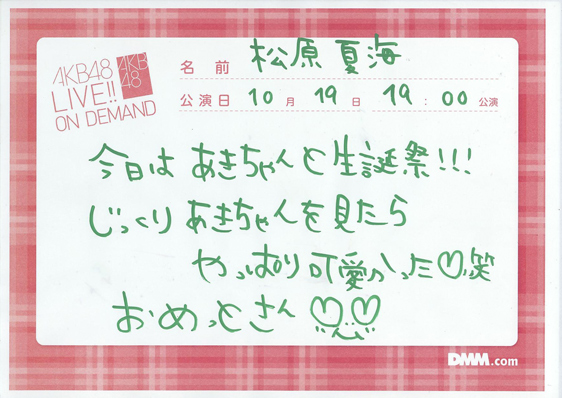 AKB48
LIVE!!
ON DEMAND
AKB
48
名前 松原夏海
公演日 10月19日 19:00公演
今日は あきちゃんと生誕祭!!!
じっくりあきちゃんを見たら
やっぱり可愛かった♡笑
おめっとさん♡♡
DMM.com